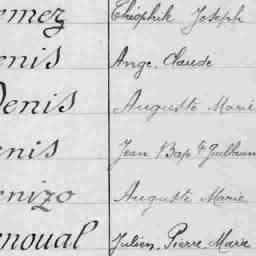 emez Théophile Joseph
enis Ange. Claude
Denis Auguste Marie
enis Jean Bapte Guillaum
enizo Auguste Marie
enoual Julien, Pierre Marie